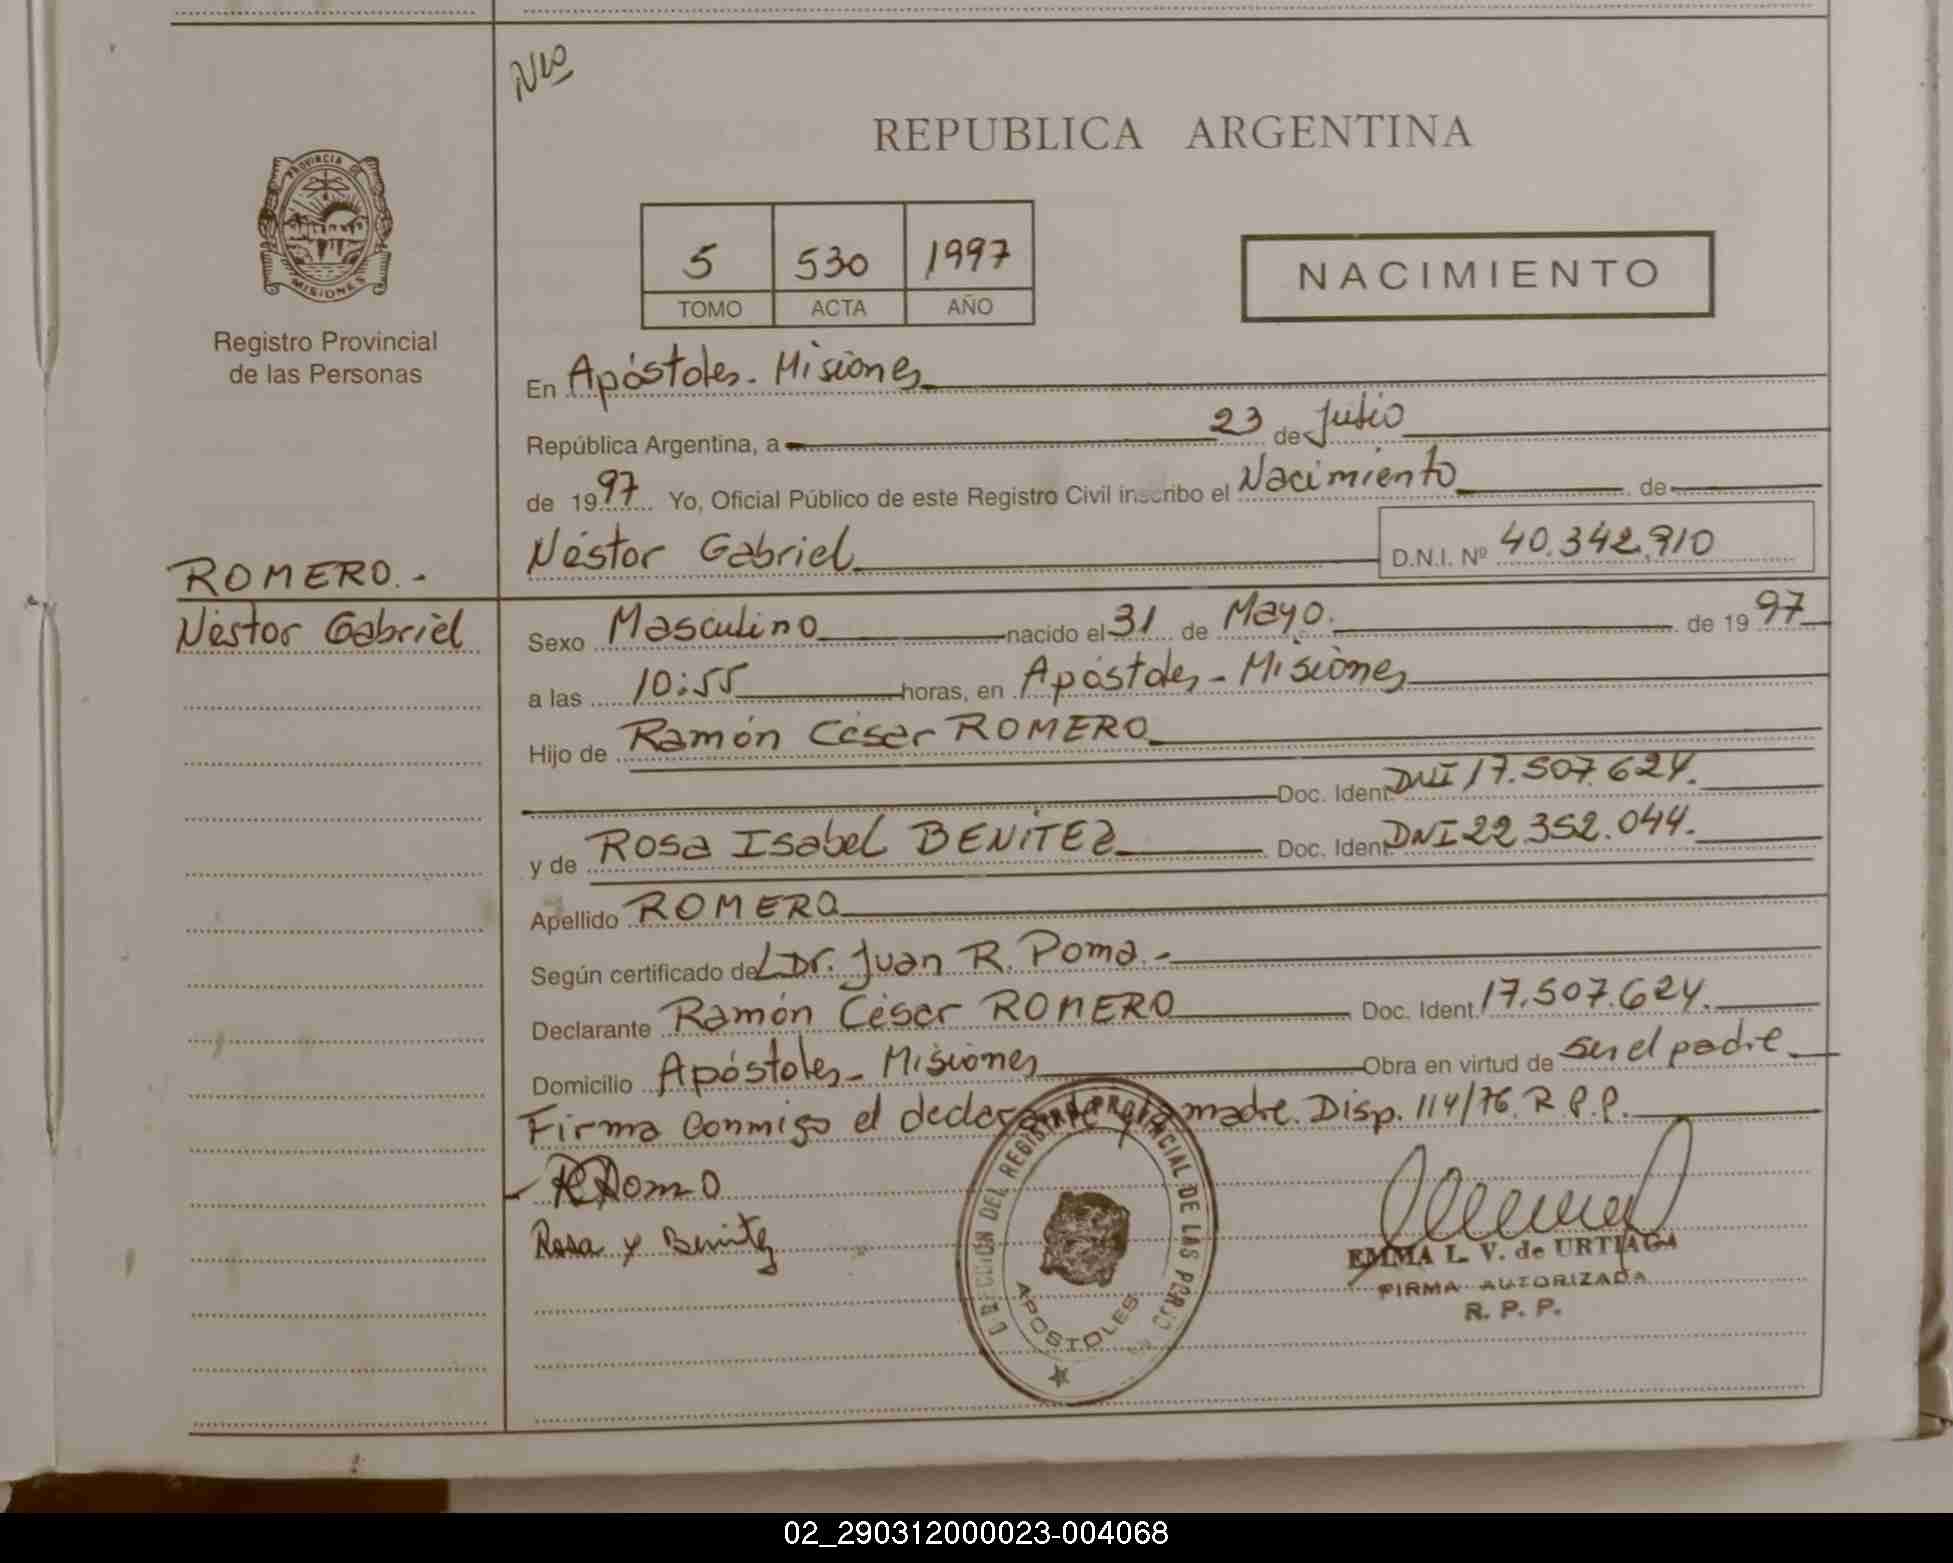 Nio
REPUBLICA ARGENTINA
PROVINCIA DE
MISIONES
Registro Provincial
de las Personas
5 530 1997
TOMO ACTA AÑO
NACIMIENTO
En Apóstoles. Misiones
República Argentina, a 23 de Julio
de 1997 Yo, Oficial Público de este Registro Civil inscribo el Nacimiento de
Néstor Gabriel D.N.I. Nº 40.342.910
ROMERO.-
Néstor Gabriel
Sexo Masculino nacido el 31 de Mayo. de 1997
a las 10:55 horas, en Apóstoles - Misiones
Hijo de Ramón César ROMERO
Doc. Ident. DNI 17.507.624.
y de ROSA ISabel BENITEZ Doc. Ident. DNI 22.352.044.
Apellido ROMERO
Según certificado del Dr. Juan R. Poma.-
Declarante Ramón César ROMERO Doc. Ident. 17.507.624.
Domicilio Apóstoles - Misiones Obra en virtud de ser el padre
Firma conmigo el declarante y la madre. Disp. 114/76. R.P.P.
Rosa y Benitez
DIRECCIÓN DEL REGISTRO PROVINCIAL DE LAS PERSONAS
APOSTOLES
EMMA L. V. de URTIAGA
FIRMA AUTORIZADA
R. P. P.
02_290312000023-004068